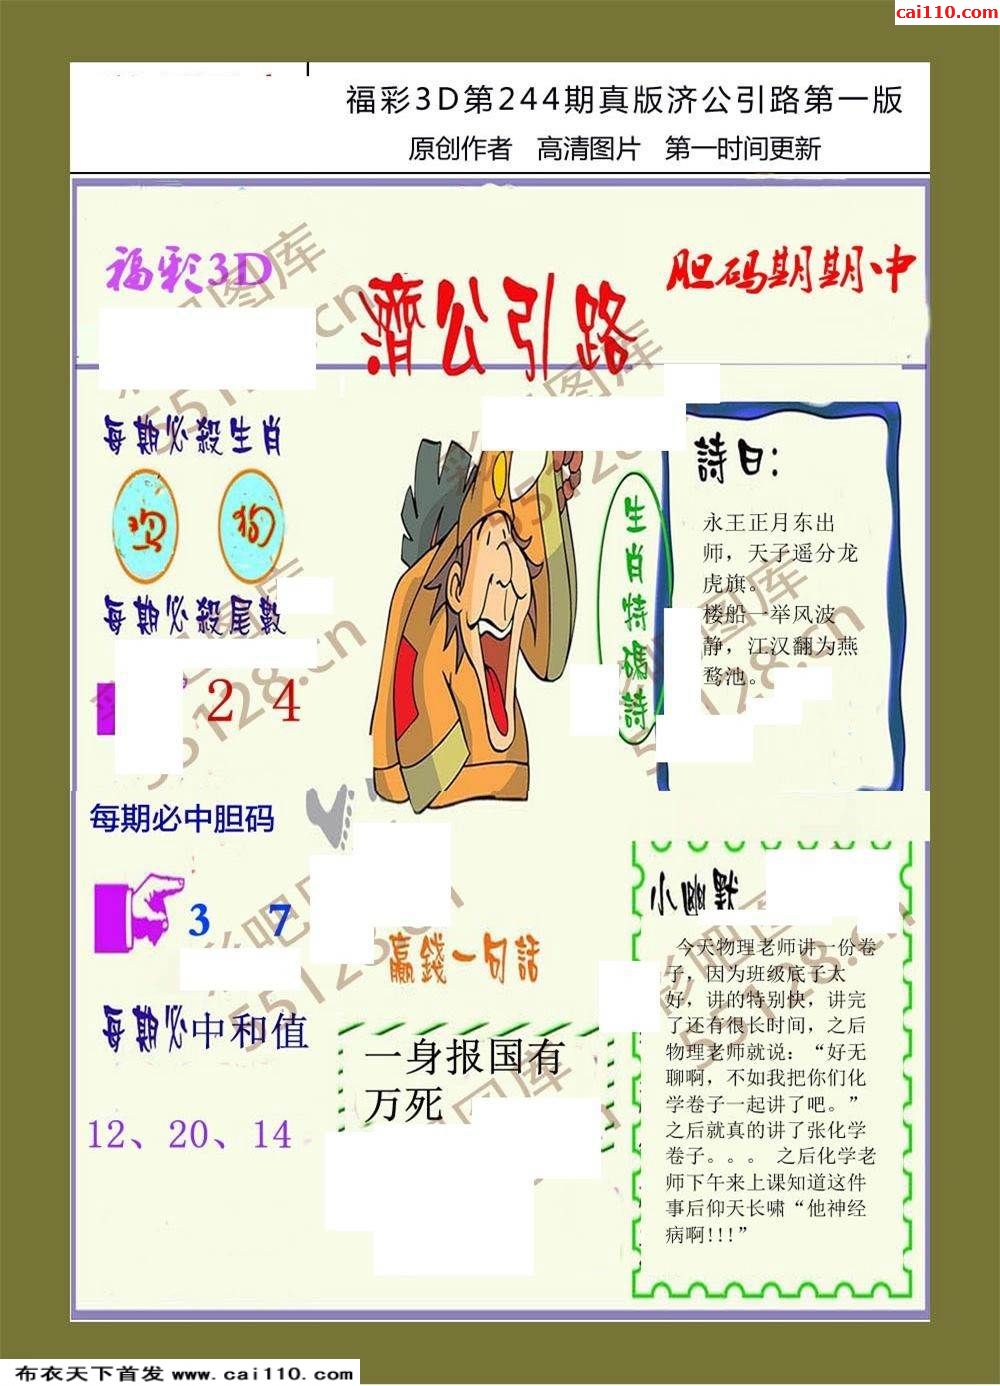 cai110.com
福彩3D第244期真版济公引路第一版
原创作者 高清图片 第一时间更新
福彩3D
濟公引路
胆码期期中
每期必殺生肖
鸡 狗
每期必殺尾數
2 4
每期必中胆码
3 7
每期必中和值
12、20、14
生肖特碼詩
詩曰:
永王正月东出
师，天子遥分龙
虎旗。
楼船一举风波
静，江汉翻为燕
鹜池。
赢錢一句話
一身报国有
万死
小幽默
今天物理老师讲一份卷
子，因为班级底子太
好，讲的特别快，讲完
了还有很长时间，之后
物理老师就说：“好无
聊啊，不如我把你们化
学卷子一起讲了吧。”
之后就真的讲了张化学
卷子。。。 之后化学老
师下午来上课知道这件
事后仰天长啸“他神经
病啊!!!”
彩吧图库
55128.cn
布衣天下首发 www.cai110.com